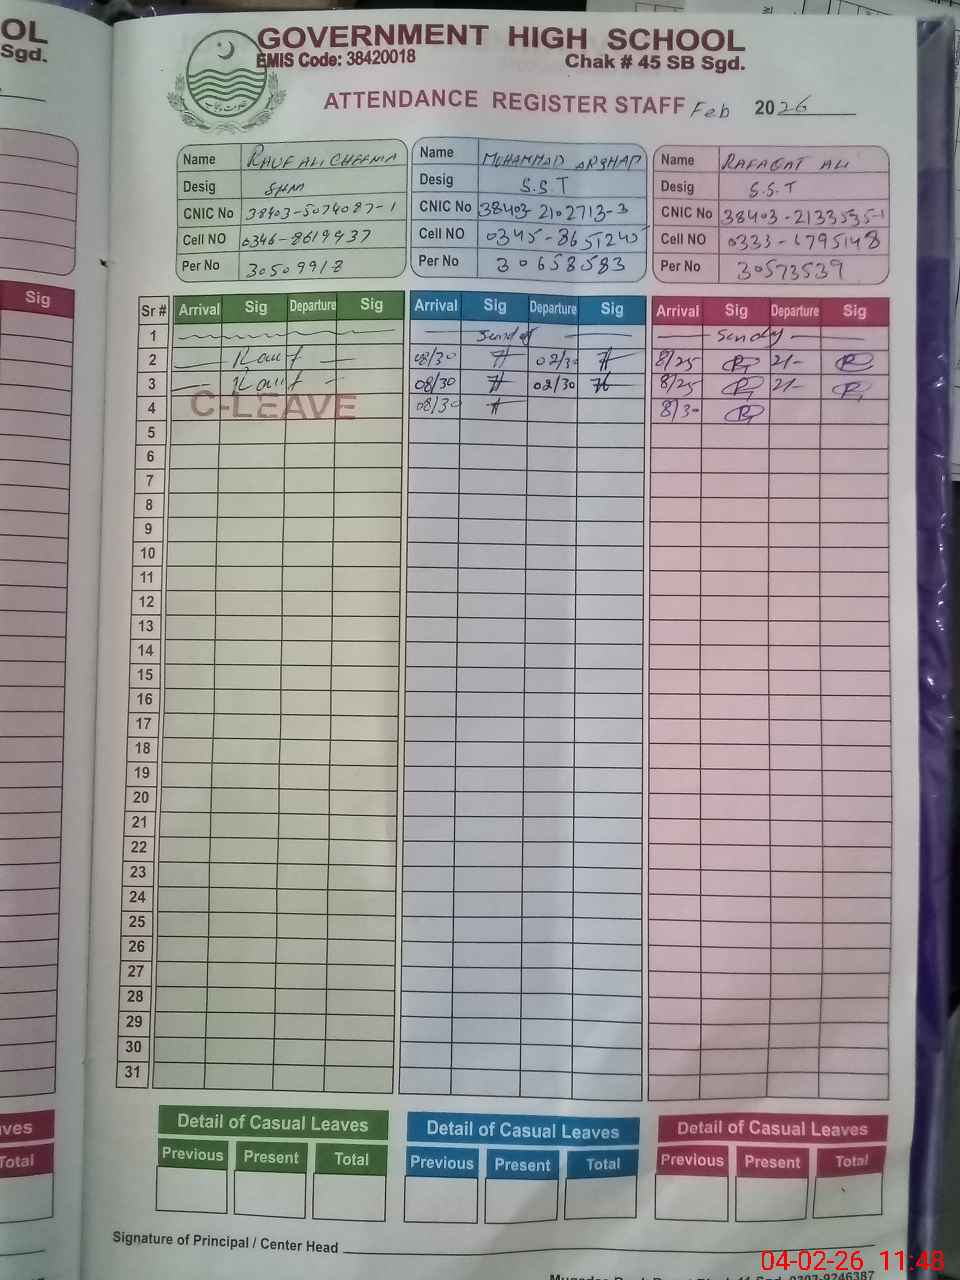 OL
Sgd.
GOVERNMENT HIGH SCHOOL
EMIS Code: 38420018
Chak # 45 SB Sgd.
ATTENDANCE REGISTER STAFF Feb 2026
Name RAUF ALI CHEEMA
Desig SHM
CNIC No 38403-5074087-1
Cell NO 0346-8619937
Per No 30509918
Name MUHAMMAD ARSHAD
Desig S.S.T
CNIC No 38403-2102713-3
Cell NO 0345-8651245
Per No 30658583
Name RAFAQAT ALI
Desig S.S.T
CNIC No 38403-2133535-1
Cell NO 0333-6795148
Per No 30573539
Sig
Sr # Arrival Sig Departure Sig Arrival Sig Departure Sig Arrival Sig Departure Sig
1 Sunday Sunday
2 Rauf 08/30 02/30 8/25 2/-
3 Rauf 08/30 02/30 8/25 2/-
4 C-LEAVE 08/30 8/30
5
6
7
8
9
10
11
12
13
14
15
16
17
18
19
20
21
22
23
24
25
26
27
28
29
30
31
ves
Total
Detail of Casual Leaves
Previous Present Total
Detail of Casual Leaves
Previous Present Total
Detail of Casual Leaves
Previous Present Total
Signature of Principal / Center Head
04-02-26 11:48